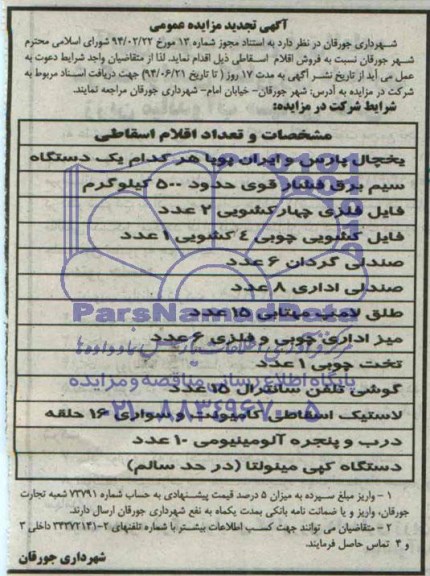 آگهی تجدید مزایده عمومی
شهرداری جورقان در نظر دارد به استناد مجوز شماره ۱۳ مورخ ۹۴/۰۲/۲۲ شورای اسلامی محترم
شهر جورقان نسبت به فروش اقلام اسقاطی ذیل اقدام نماید. لذا از متقاضیان واجد شرایط دعوت به
عمل می آید از تاریخ نشر آگهی به مدت ۱۷ روز ( تا تاریخ ۹۴/۰۶/۲۱) جهت دریافت اسناد مربوط به
شرکت در مزایده به آدرس: شهر جورقان- خیابان امام- شهرداری جورقان مراجعه نمایند.
شرایط شرکت در مزایده:
مشخصات و تعداد اقلام اسقاطی
یخچال پارس و ایران پویا هر کدام یک دستگاه
سیم برق فشار قوی حدود ۵۰۰ کیلوگرم
فایل فلزی چهارکشویی ۲ عدد
فایل کشویی چوبی ٤ کشویی ۱ عدد
صندلی گردان ۶ عدد
صندلی اداری ۸ عدد
طلق لامپ مهتابی ۱۵ عدد
میز اداری چوبی و فلزی ۶ عدد
تخت چوبی ۱ عدد
گوشی تلفن سانترال ۱۵ عدد
لاستیک اسقاطی کامیونت و سواری ۱۶ حلقه
درب و پنجره آلومینیومی ۱۰ عدد
دستگاه کپی مینولتا (در حد سالم)
ParsNamadData
پایگاه اطلاع رسانی مناقصه و مزایده
۰۲۱-۸۸۳۴۹۶۷۰-۵
۱ - واریز مبلغ سپرده به میزان ۵ درصد قیمت پیشنهادی به حساب شماره ۷۳۷۹۱ شعبه تجارت
جورقان، واریز و یا ضمانت نامه بانکی بمدت یکماه به نفع شهرداری جورقان ارسال دارند.
۲ - متقاضیان می توانند جهت کسب اطلاعات بیشتر با شماره تلفنهای ۲-۳۴۳۷۲۱۳۱ داخلی ۳
و ۴ تماس حاصل فرمایند.
شهرداری جورقان